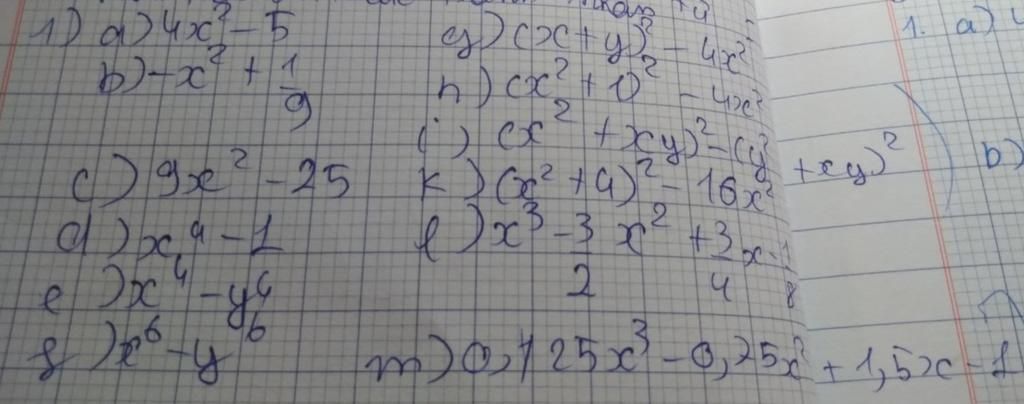 1) a) 4x² - 5
b) - x² + 1/9
c) 9x² - 25
d) x⁴ - 1
e) x⁴ - y⁴
f) x⁶ - y⁶
g) (x + y)² - 4x²
h) (x² + 1)² - 4x²
i) (x² + xy)² - (y² + xy)²
k) (x² + 4)² - 16x²
l) x³ - 3/2 x² + 3/4 x - 1/8
m) 0,125x³ - 0,75x² + 1,5x - 1
1. a)
b)